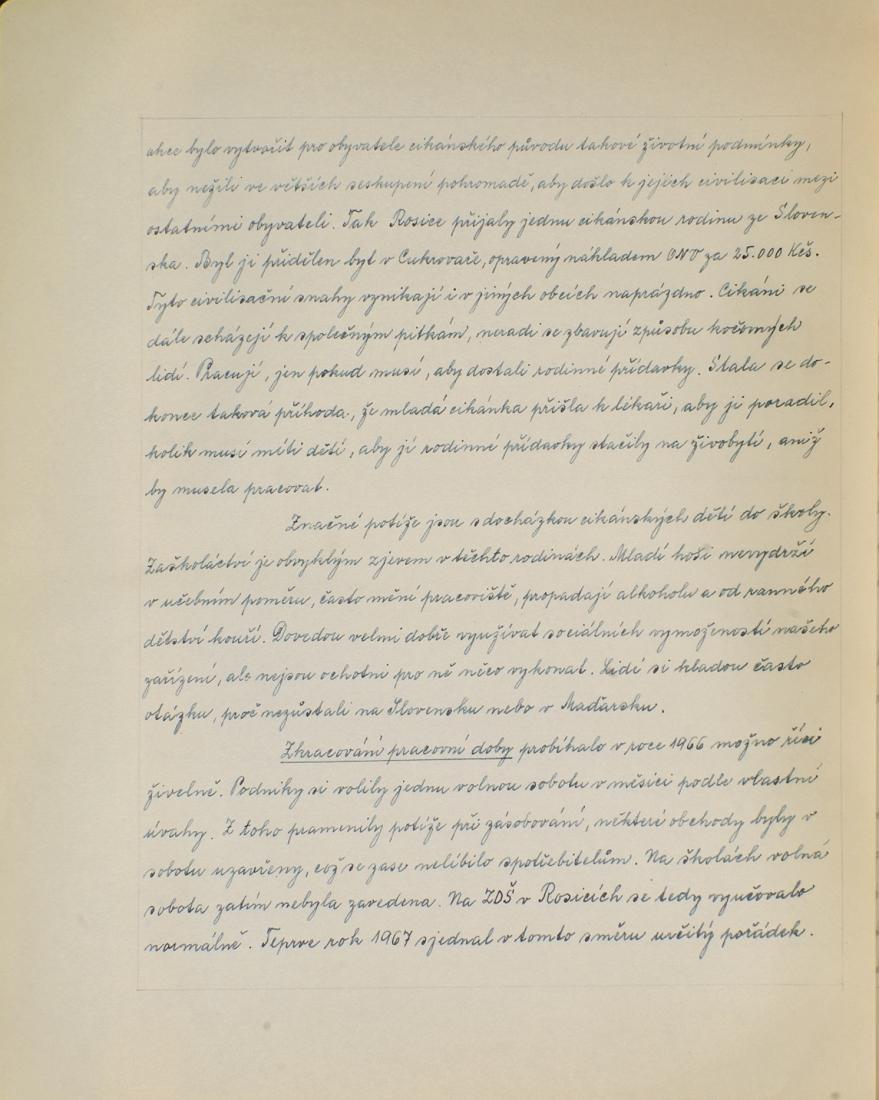 akce bylo vytvořit pro obyvatele cikánského původu takové životní podmínky,
aby nežili ve větších seskupení pohromadě, aby došlo k jejich civilisaci mezi
ostatními obyvateli. Tak Rosice přijaly jednu cikánskou rodinu ze Sloven-
ska. Byl jí přidělen byt v Cukrovaře, opravený nákladem ONV za 25.000 Kčs.
Tyto civilisační snahy vznikají i v jiných obcích naprázdno. Cikáni se
dále scházejí k společným pitkám, neradi se zbavují způsobu kočovných
lidí. Pracují, jen pokud musí, aby dostali rodinné přídavky. Stala se do-
konce taková příhoda, že mladá cikánka přišla k lékaři, aby jí poradil,
kolik musí míti dětí, aby jí rodinné přídavky stačily na živobytí, aniž
by musela pracovat.
Značné potíže jsou s docházkou cikánských dětí do školy.
Zaškoláctví je obvyklým zjevem v těchto rodinách. Mladí hoši nevydrží
v učebním poměru, často mění pracoviště, propadají alkoholu a od ranného
dětství kouří. Dovedou velmi dobře využívat sociálních vymožeností našeho
zařízení, ale nejsou ochotni pro ně něco vykonat. Lidé si kladou často
otázku, proč nezůstali na Slovensku nebo v Maďarsku.
Zkracování pracovní doby probíhalo v roce 1966 možno říci
živelně. Podniky si volily jednu volnou sobotu v měsíci podle vlastní
úvahy. Z toho pramenily potíže při zásobování, některé obchody byly v
sobotu uzavřeny, což se zase nelíbilo spotřebitelům. Na školách volná
sobota zatím nebyla zavedena. Na ZDŠ v Rosicích se tedy vyučovalo
normálně. Teprve rok 1967 sjednal v tomto směru určitý pořádek.